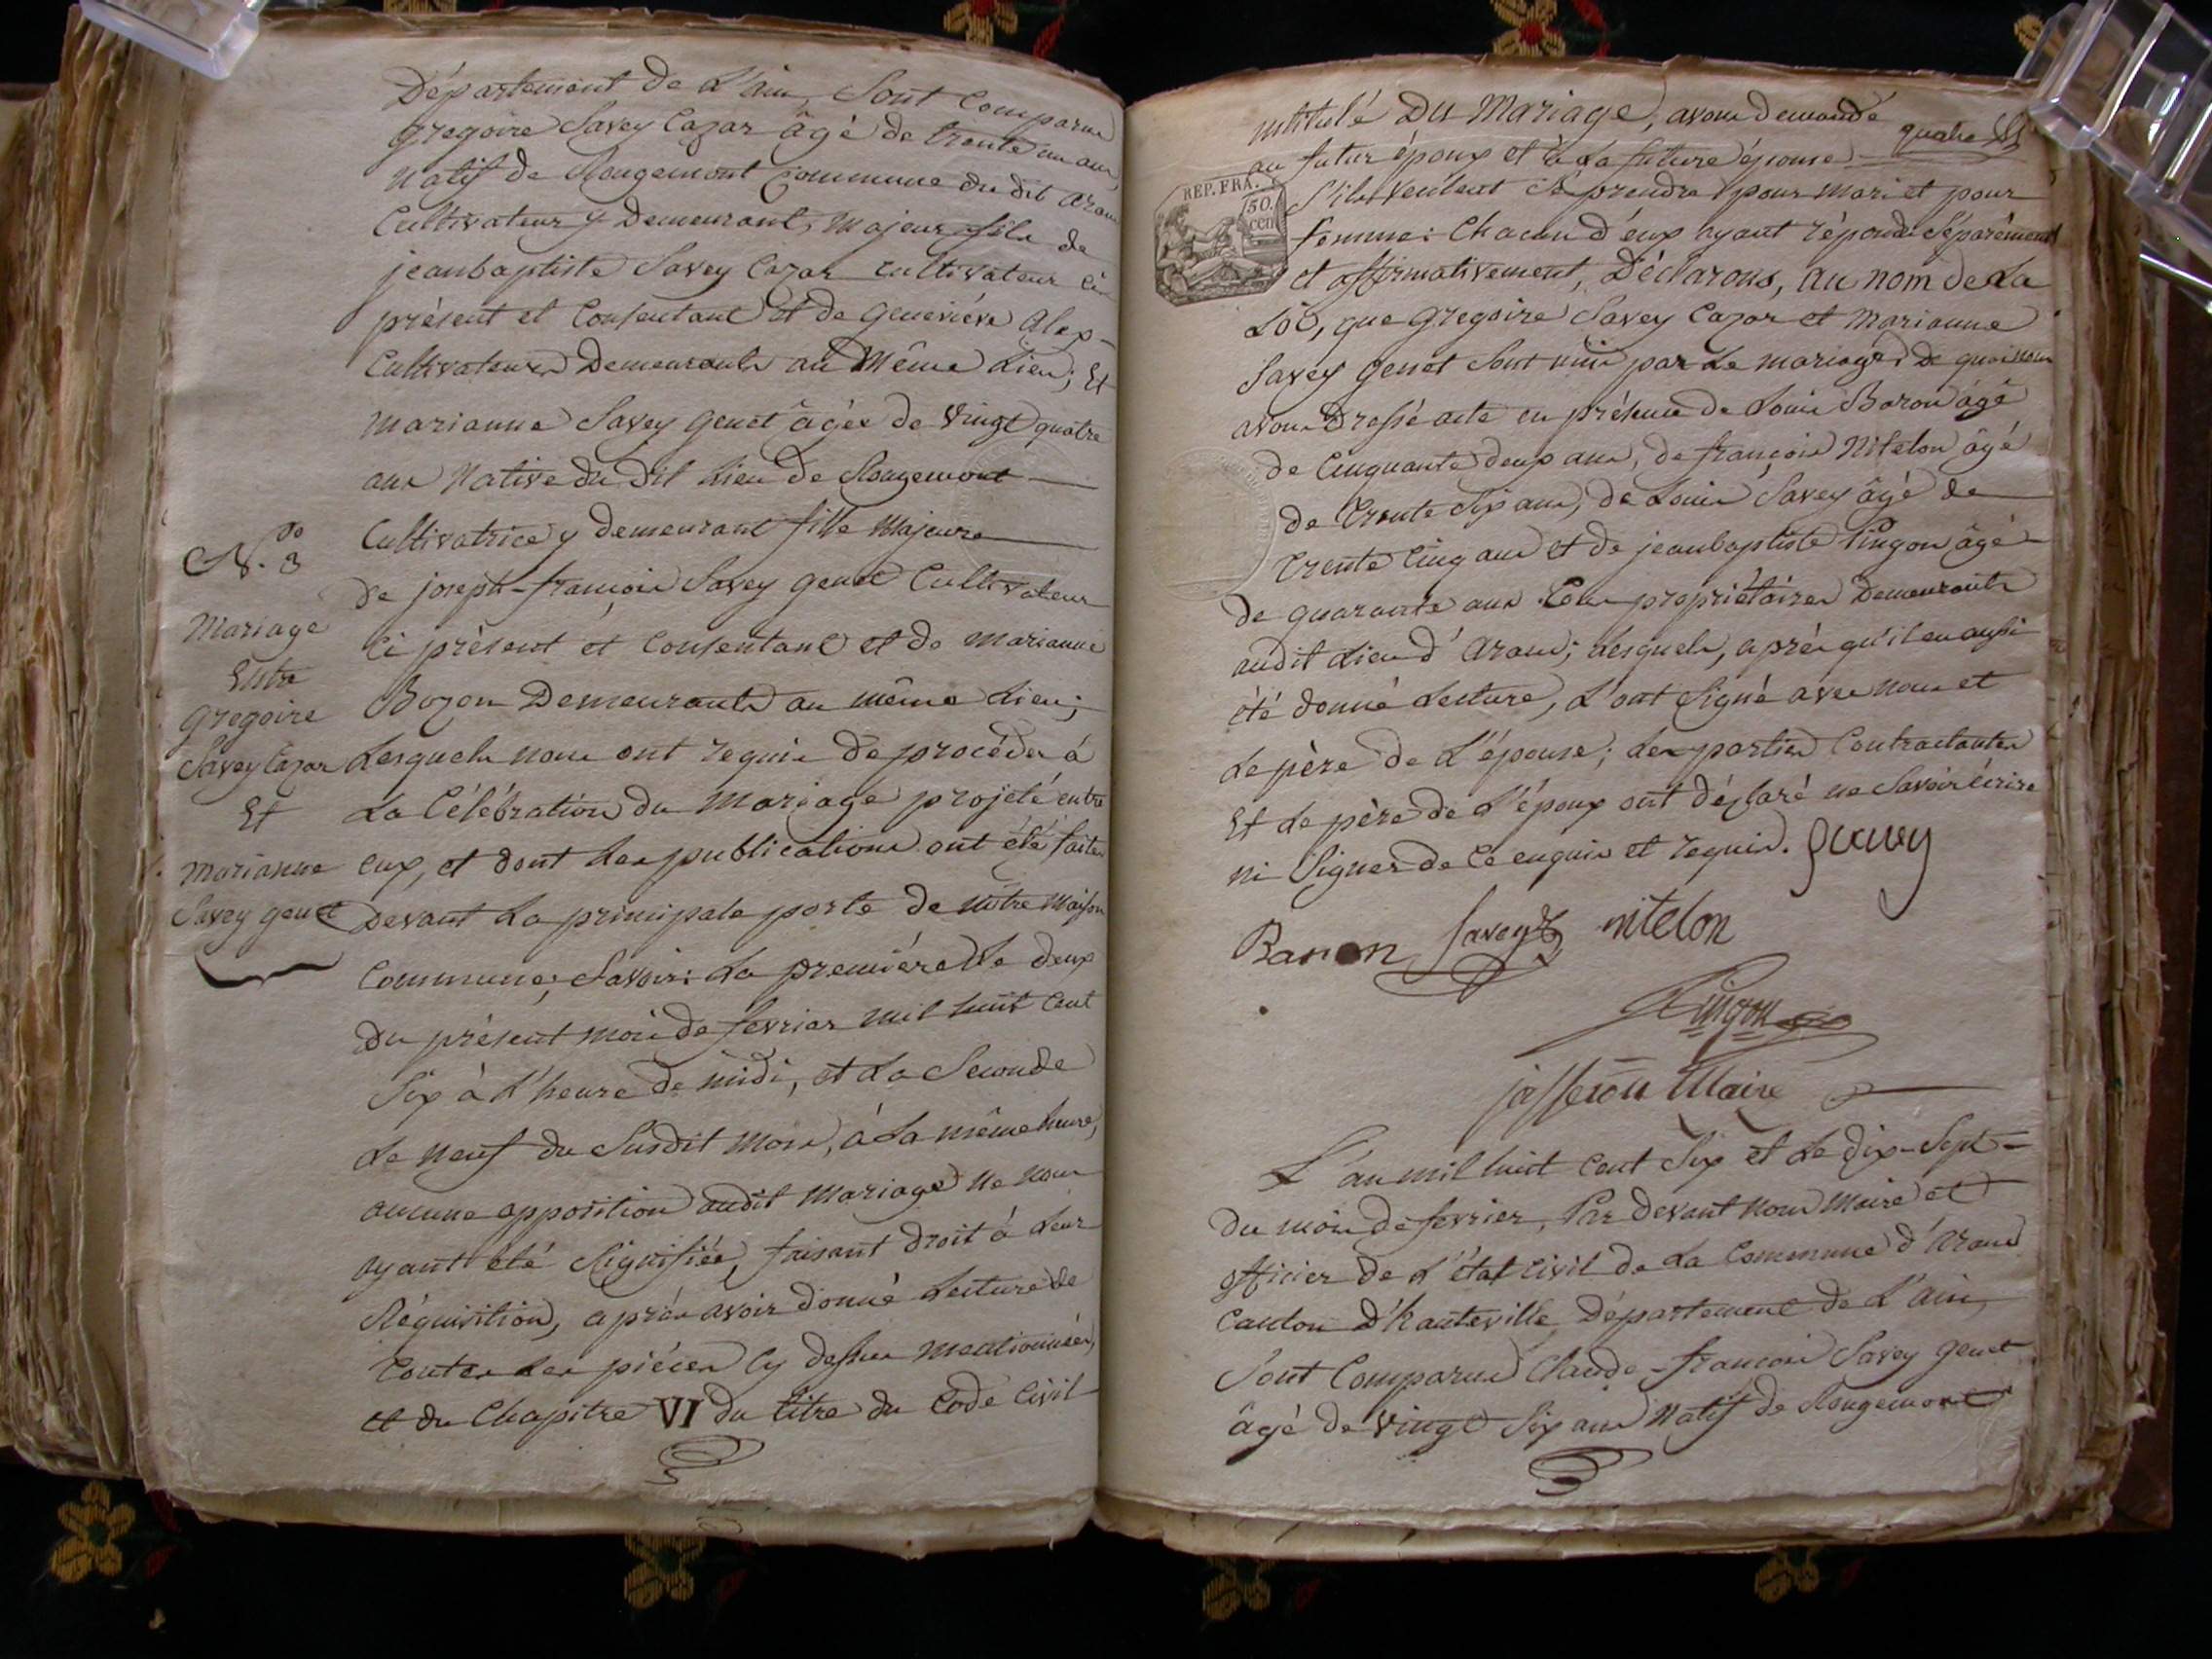 Département de L'ain, Sont Comparus
gregoire Savey Cazar âgé de trente un ans,
natif de Rougemont Commune du dit aranc
Cultivateur y Demeurant, Majeur fils de
jeanbaptiste Savey Cazar cultivateur ci
présent et Consentant et de geneviéve alex
Cultivateurs Demeurants au Même Lieu; Et
marianne Savey genet âgée de vingt quatre
ans Native du dit Lieu de Rougemont
Cultivatrice y demeurant fille Majeure
de joseph-françois Savey genet Cultivateur
ci présent et Consentant et de marianne
Bozon Demeurants au même Lieu;
Lesquels nous ont requis de procéder à
La Célébration du Mariage projeté entre
eux, et dont Les publications ont été faites
Devant La principale porte de nôtre Maison
Commune; Savoir: La premiére Le deux
du présent mois de fevrier mil huit Cent
Six à L'heure de midi, et La Seconde
Le neuf du Susdit mois, à La même heure,
aucune opposition audit Mariage ne nous
ayant été Signifiée, faisant droit à Leur
Réquisition, aprés avoir donné Lecture de
toutes Les piéces Cy dessus mentionnées,
et du Chapitre VI du titre du Code Civil
N.º 3
Mariage
Entre
gregoire
Savey Cazar
Et
marianne
Savey genet
intitulé Du Mariage, avons demandé
quatre
au futur époux et à La future épouse
REP. FRA.
50.
cen
S'ils veulent Se prendre pour mari et pour
femme: Chacun d'eux ayant répondu Séparément
et affirmativement, Déclarons, au nom de La
Loi, que gregoire Savey Cazar et Marianne
Savey genet Sont unis par Le mariage; De quoi nous
avons Dressé acte en présence de Louis Baron âgé
de Cinquante deux ans, de françois Nitelon âgé
de trente Six ans, de Louis Savey âgé de
trente Cinq ans et de jeanbaptiste Pingon âgé
de quarante ans tous propriétaires Demeurants
audit Lieu d'aranc; Lesquels, aprés qu'il en aussi
été donné Lecture, L'ont Signé avec nous et
Le pére de L'épouse; Les parties Contractantes
Et Le pére de L'époux ont déclaré ne Savoir écrire
ni Signer de Ce enquis et requis. Savey
Baron Savey nitelon
Pingon
jasseron Maire
L'an mil huit Cent Six et Le dix-Sept
du mois de fevrier, Par devant nous Maire et
officier de L'état Civil de La Commune d'aranc
Canton D'hauteville Département de L'ain,
Sont Comparus Claude-françois Savey genet
âgé de vingt Six ans Natif de Rougemont